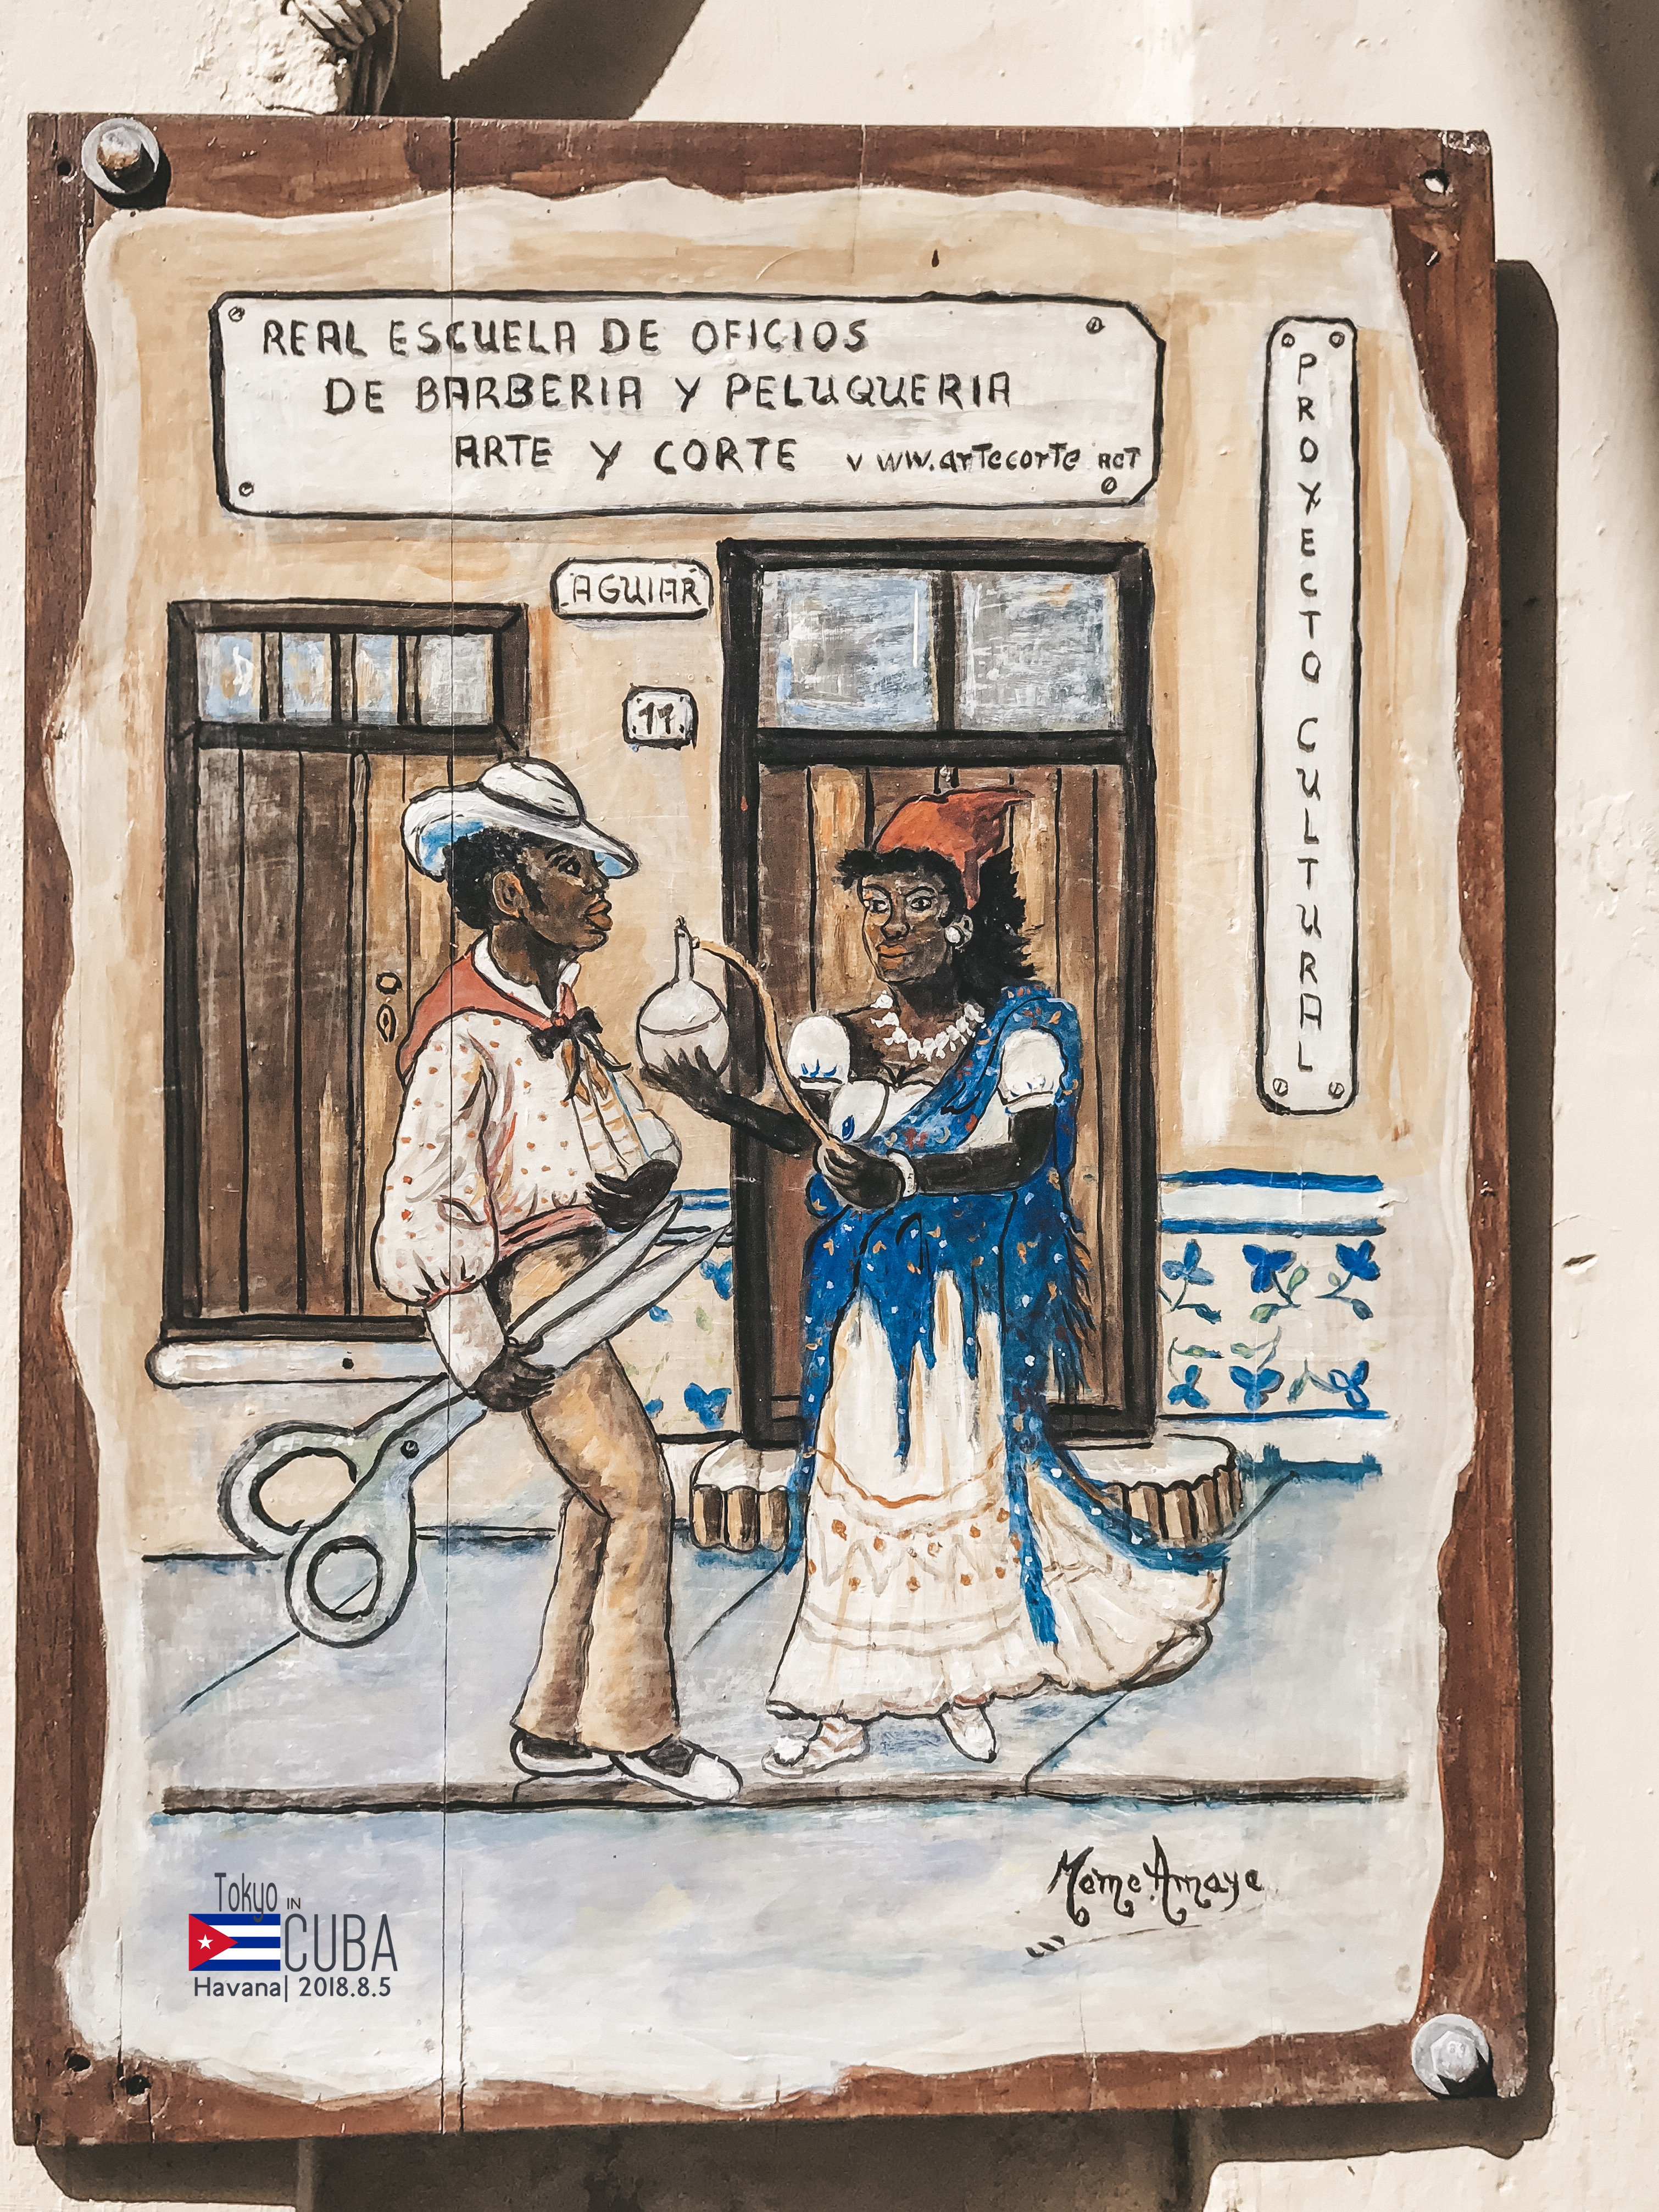 REAL ESCUELA DE OFICIOS
DE BARBERIA Y PELUQUERIA
ARTE Y CORTE www.artecorte net
PROYECTO CULTURAL
AGUIAR
11
Meme Amaye
Tokyo IN
CUBA
Havana| 2018.8.5